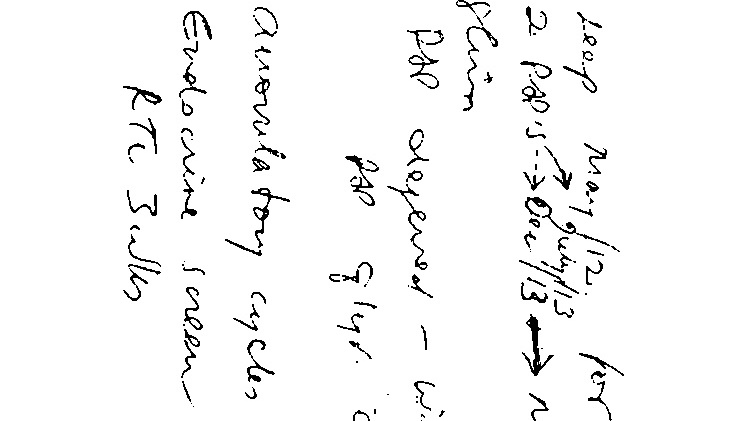 Leep May/12. for
2 PAP's --> July/13
Dec/13 → N
PAP deferred -
PAP q 1yr.
anovulatory cycles
Endocrine screen
RTC 3 wks